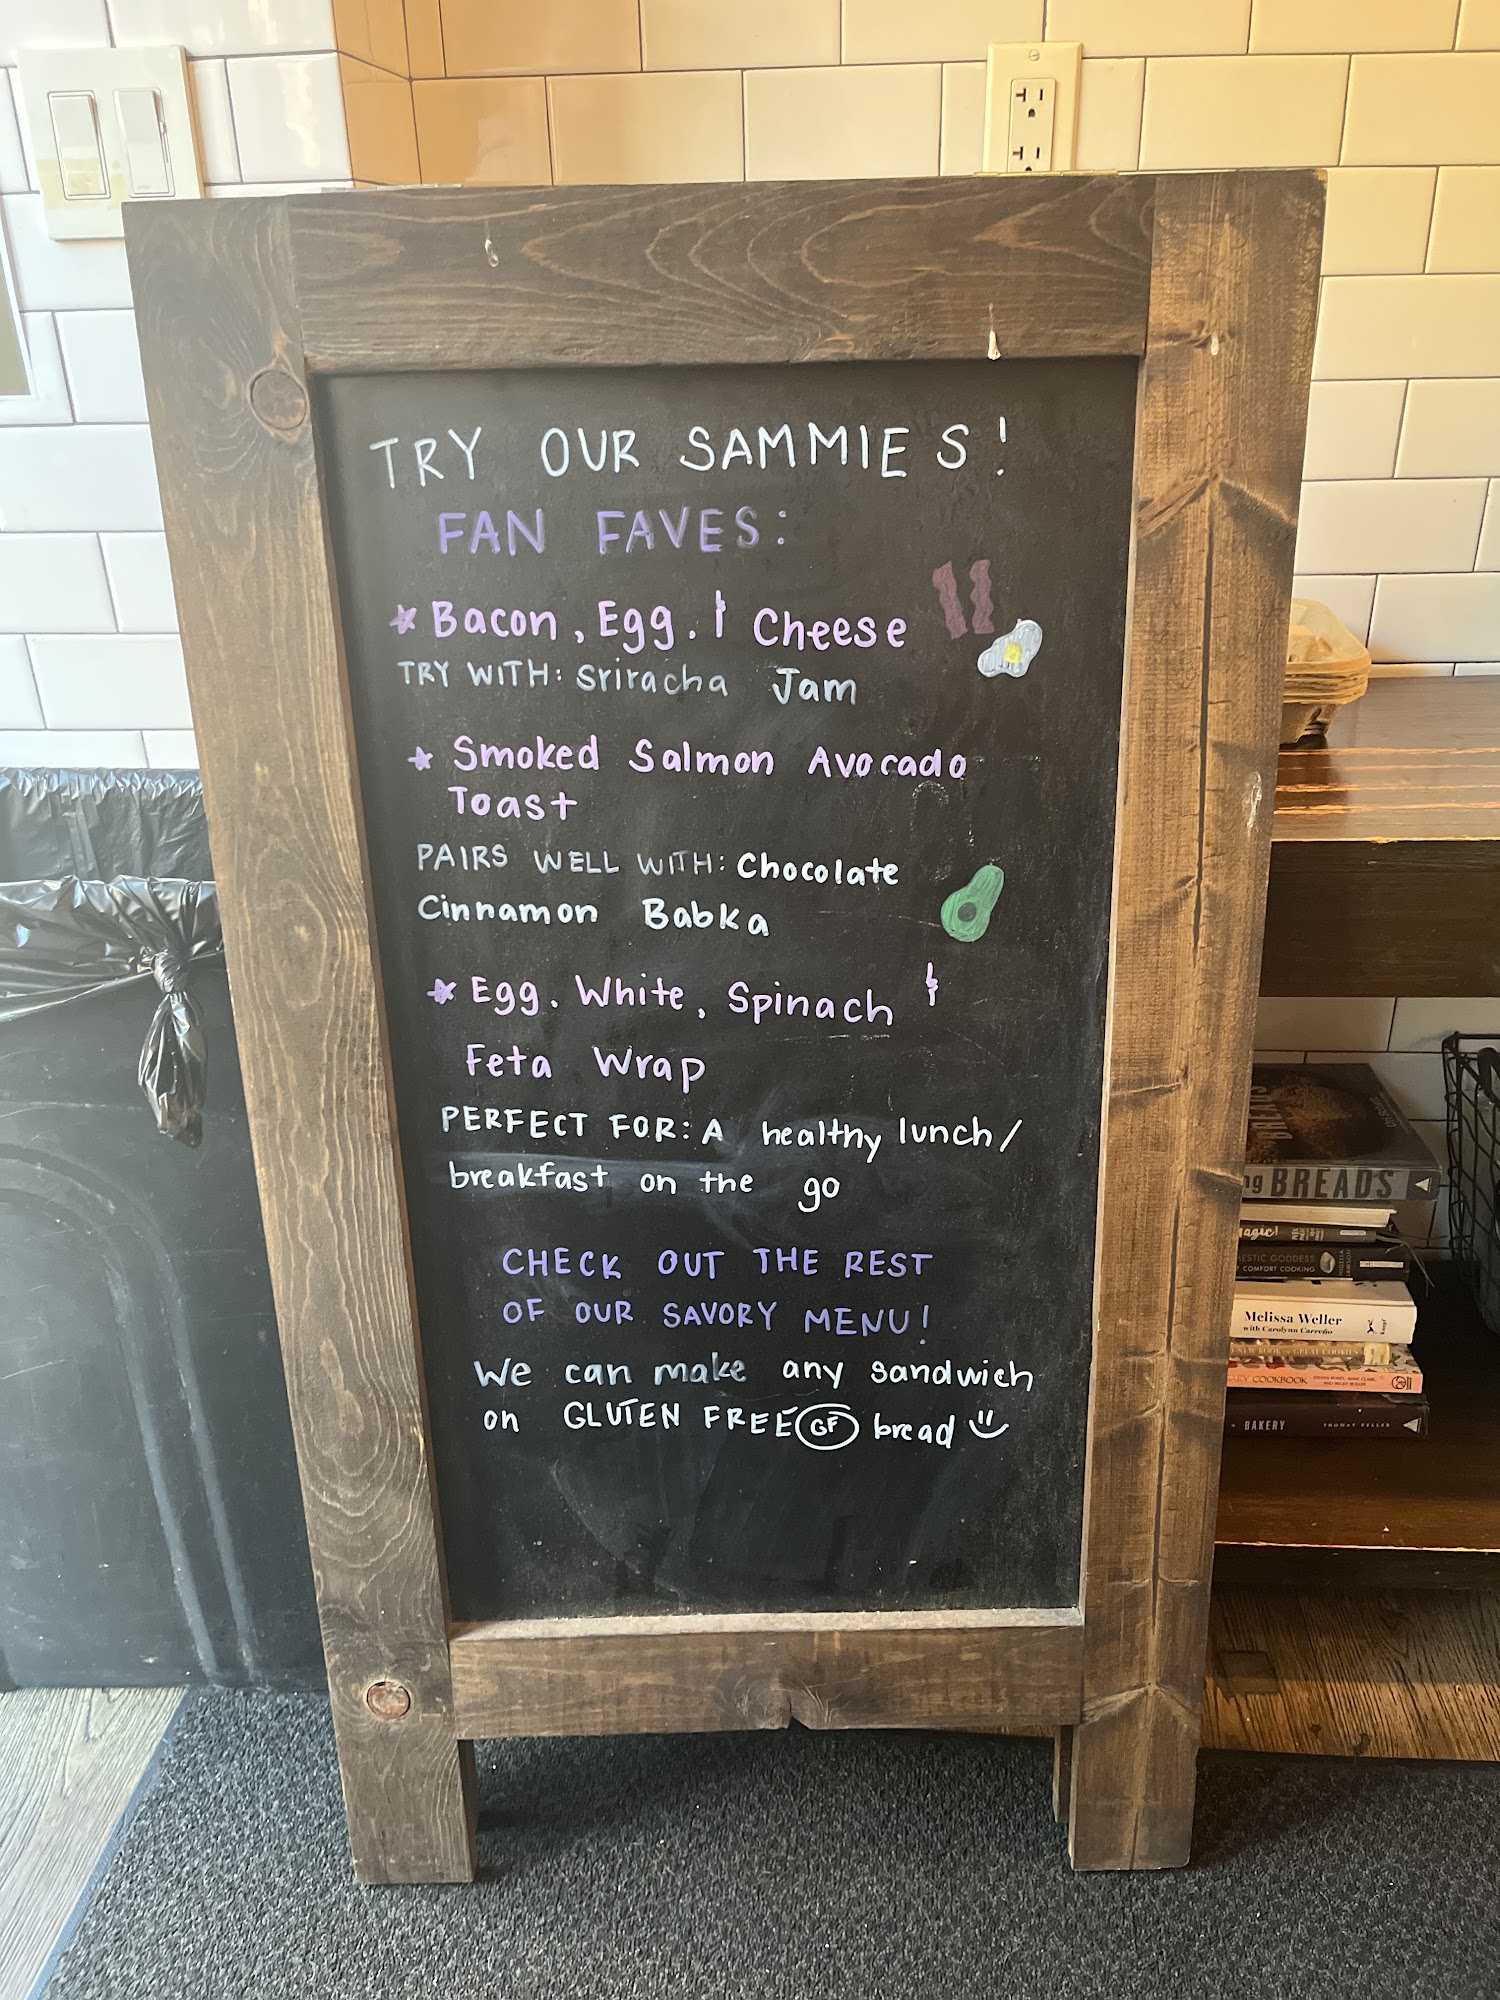 TRY OUR SAMMIES!
FAN FAVES:
* Bacon, Egg, & Cheese
TRY WITH: Sriracha Jam
* Smoked Salmon Avocado
Toast
PAIRS WELL WITH: Chocolate
Cinnamon Babka
* Egg. White, Spinach &
Feta Wrap
PERFECT FOR: A healthy lunch/
breakfast on the go
CHECK OUT THE REST
OF OUR SAVORY MENU!
We can make any sandwich
on GLUTEN FREE GF bread
BREADS
agic!
ESTIC GODDESS
F COMFORT COOKING
Melissa Weller
with Carolynn Carreño
NEW BOOK OF GREAT COOKIES
ARY COOKBOOK
BAKERY THOMAS KELLER